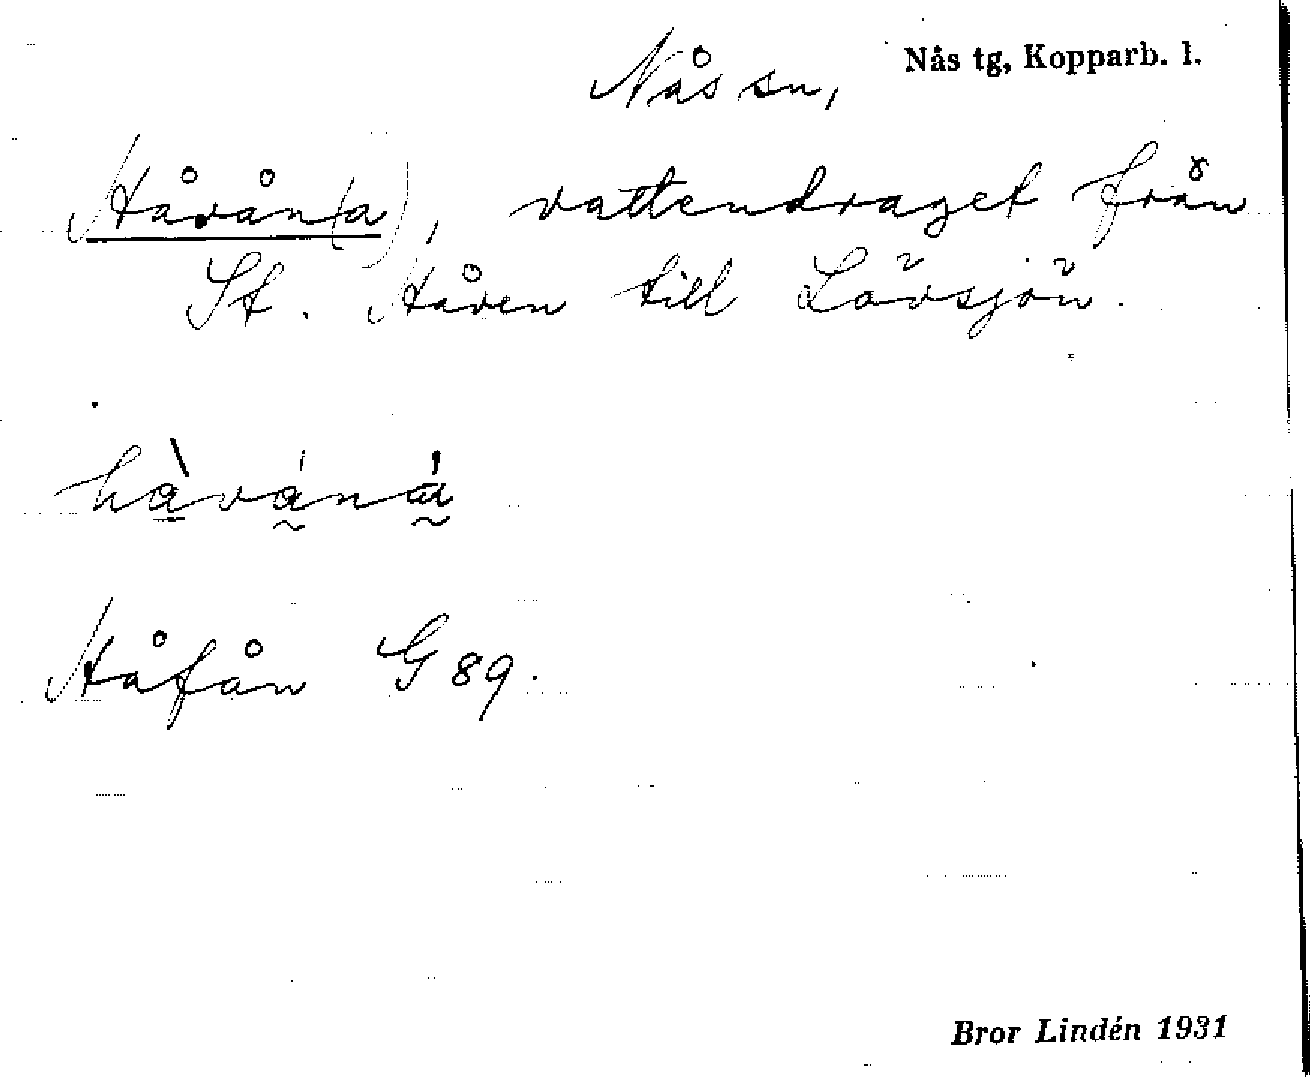 Nås tg, Kopparb. l.
Nås sn,
Håvån(a), vattendraget från
St. Håven till Lövsjön.
hàvåna
Håfån G 89.
Bror Lindén 1931